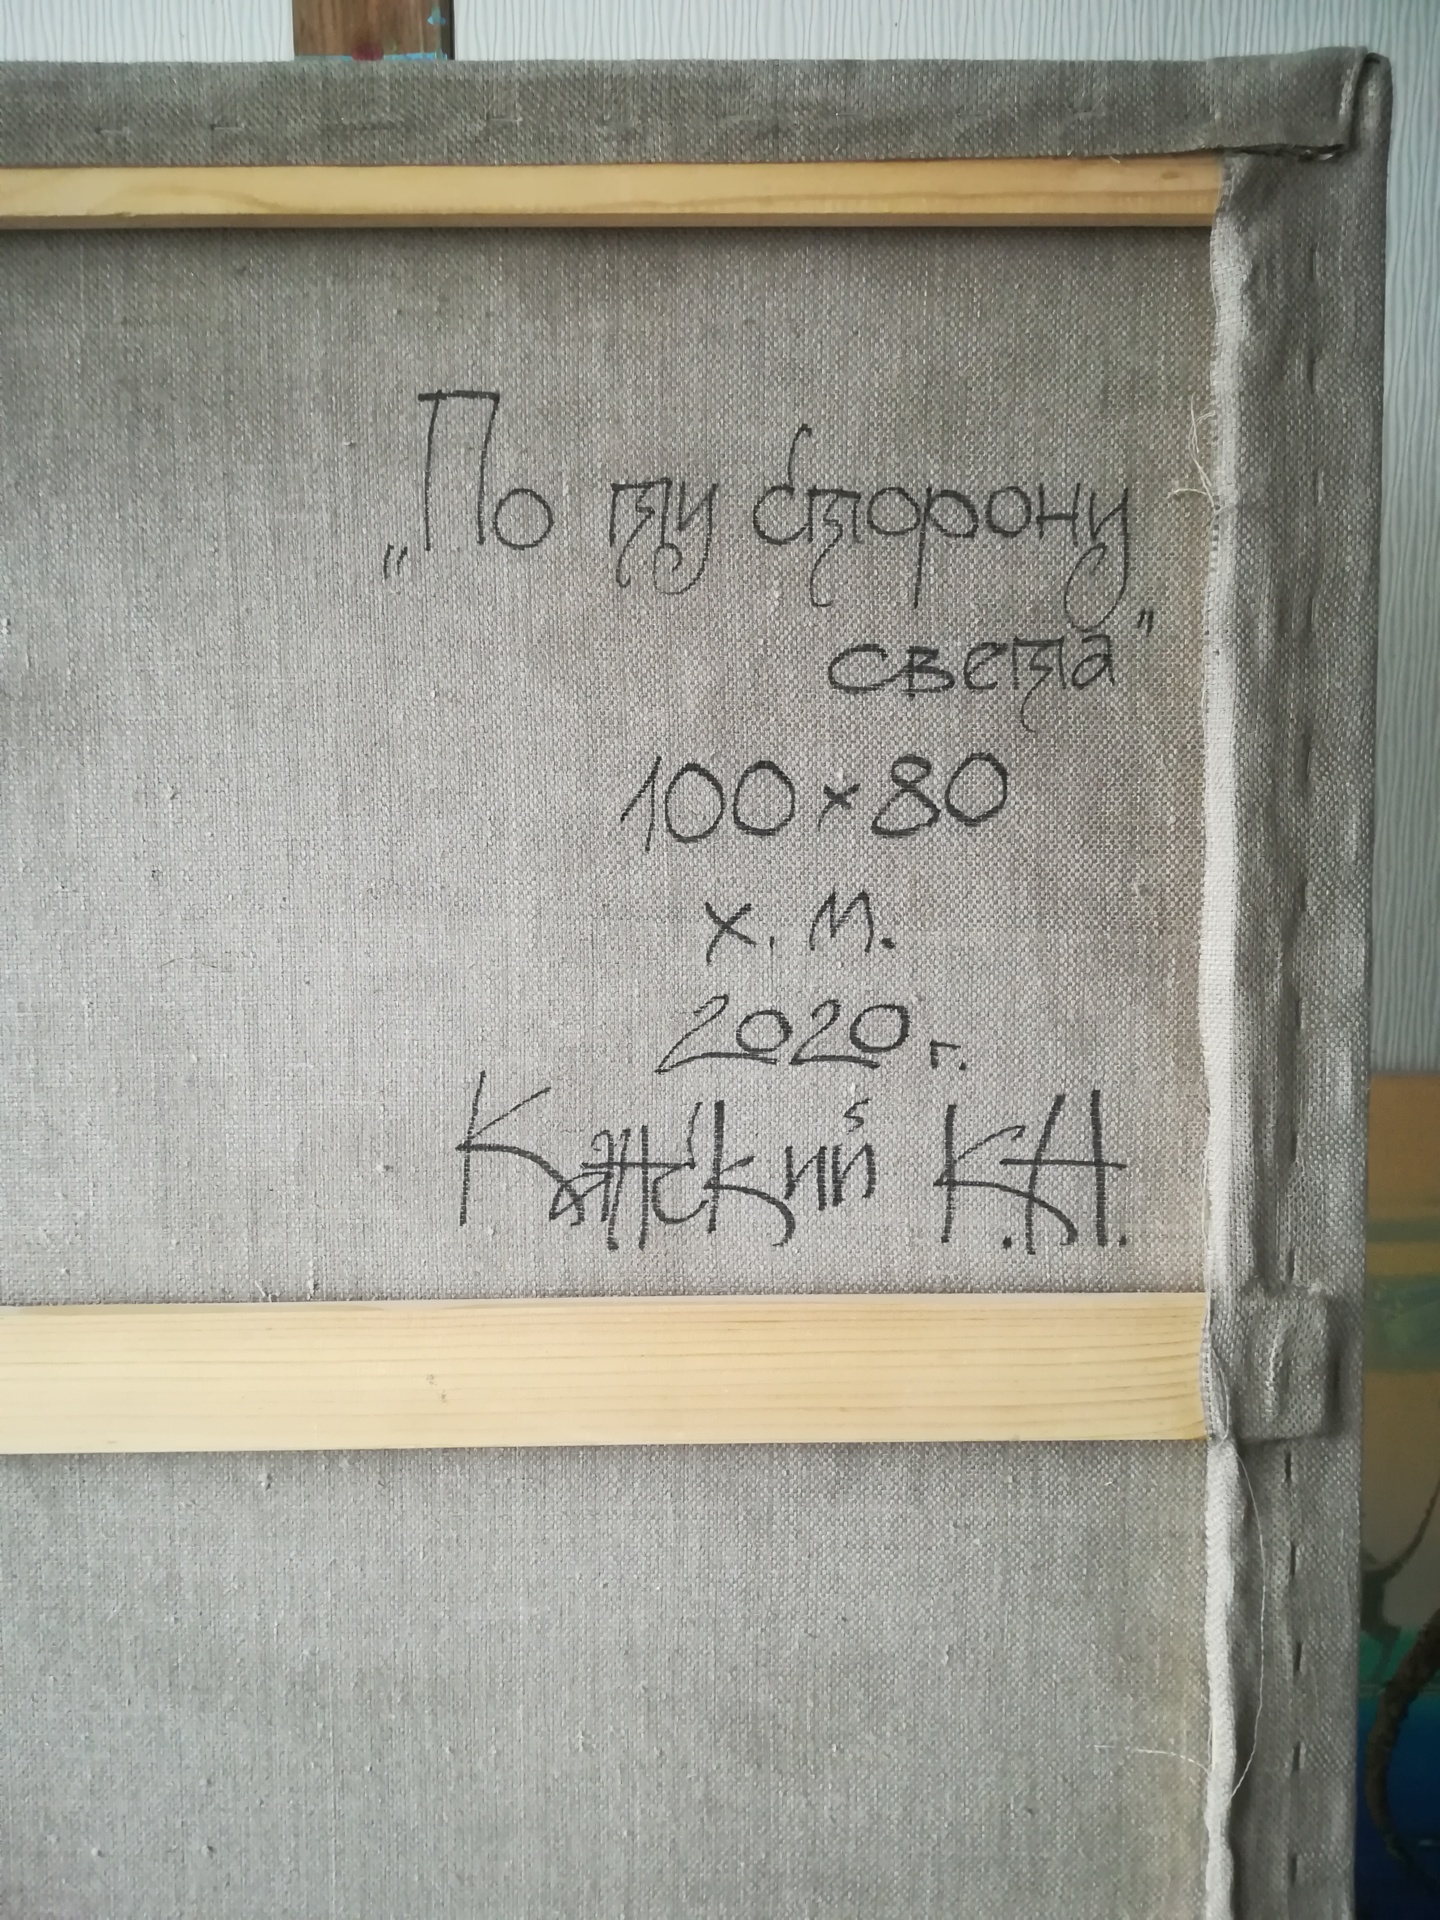 „По ту сторону
света"
100×80
х. м.
2020 г.
Канский К.Н.